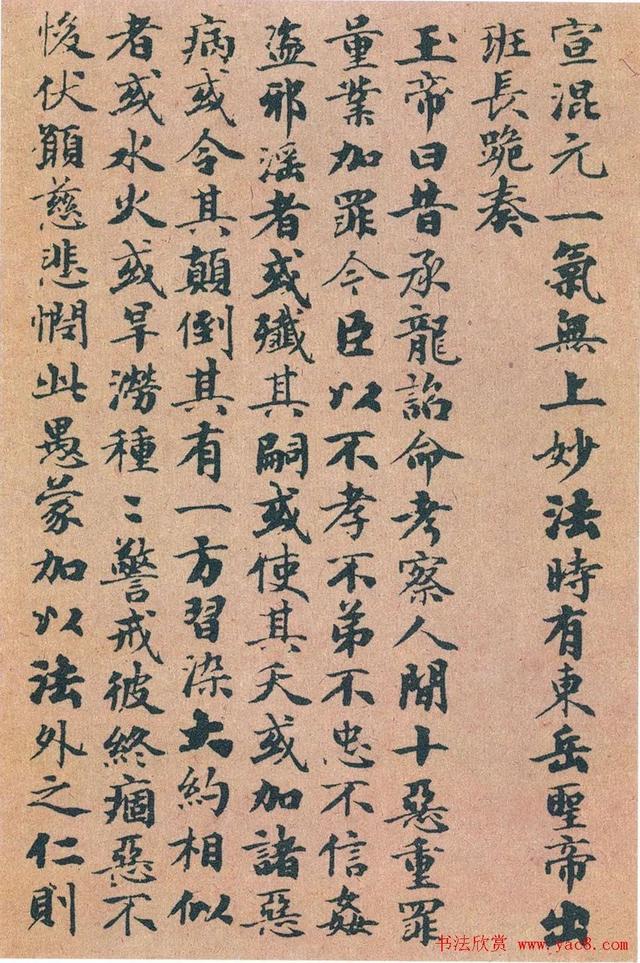 宣混元一氣無上妙法時有東岳聖帝出
班長跪奏
玉帝曰昔承龍詔命考察人間十惡重罪
量業加罪今臣以不孝不弟不忠不信姦
盜邪淫者或殲其嗣或使其夭或加諸惡
病或令其顛倒其有一方習染大約相似
者或水火或旱澇種〻警戒彼終痼惡不
悛伏願慈悲憫此愚蒙加以法外之仁則
书法欣赏 www.yac8.com